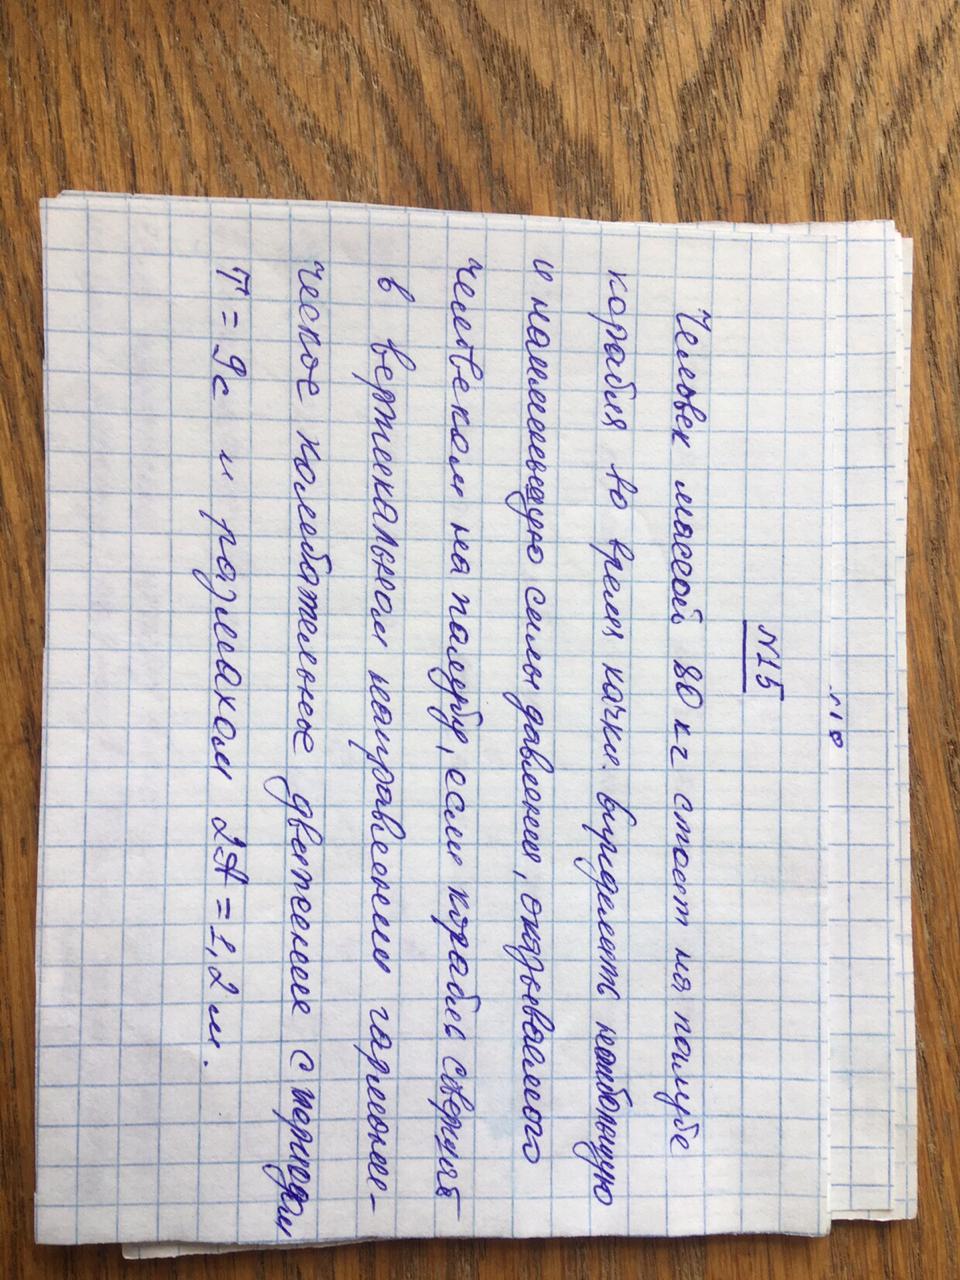 N15
Человек массой 80 кг стоит на палубе
корабля во время качки. Определить наибольшую
и наименьшую силы давления, оказываемого
человеком на палубу, если корабль совершает
в вертикальном направлении гармони-
ческое колебательное движение с периодом
T = 9с и размахом 2A = 1,2 м.